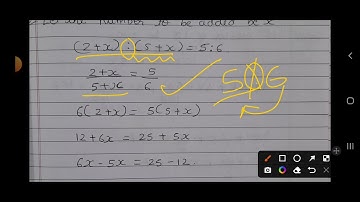 the number to be added be x
(2+x) : (5+x) = 5:6
2+x / 5+x = 5 / 6
5 6
6(2+x) = 5(5+x)
12+6x = 25 + 5x
6x - 5x = 25 - 12